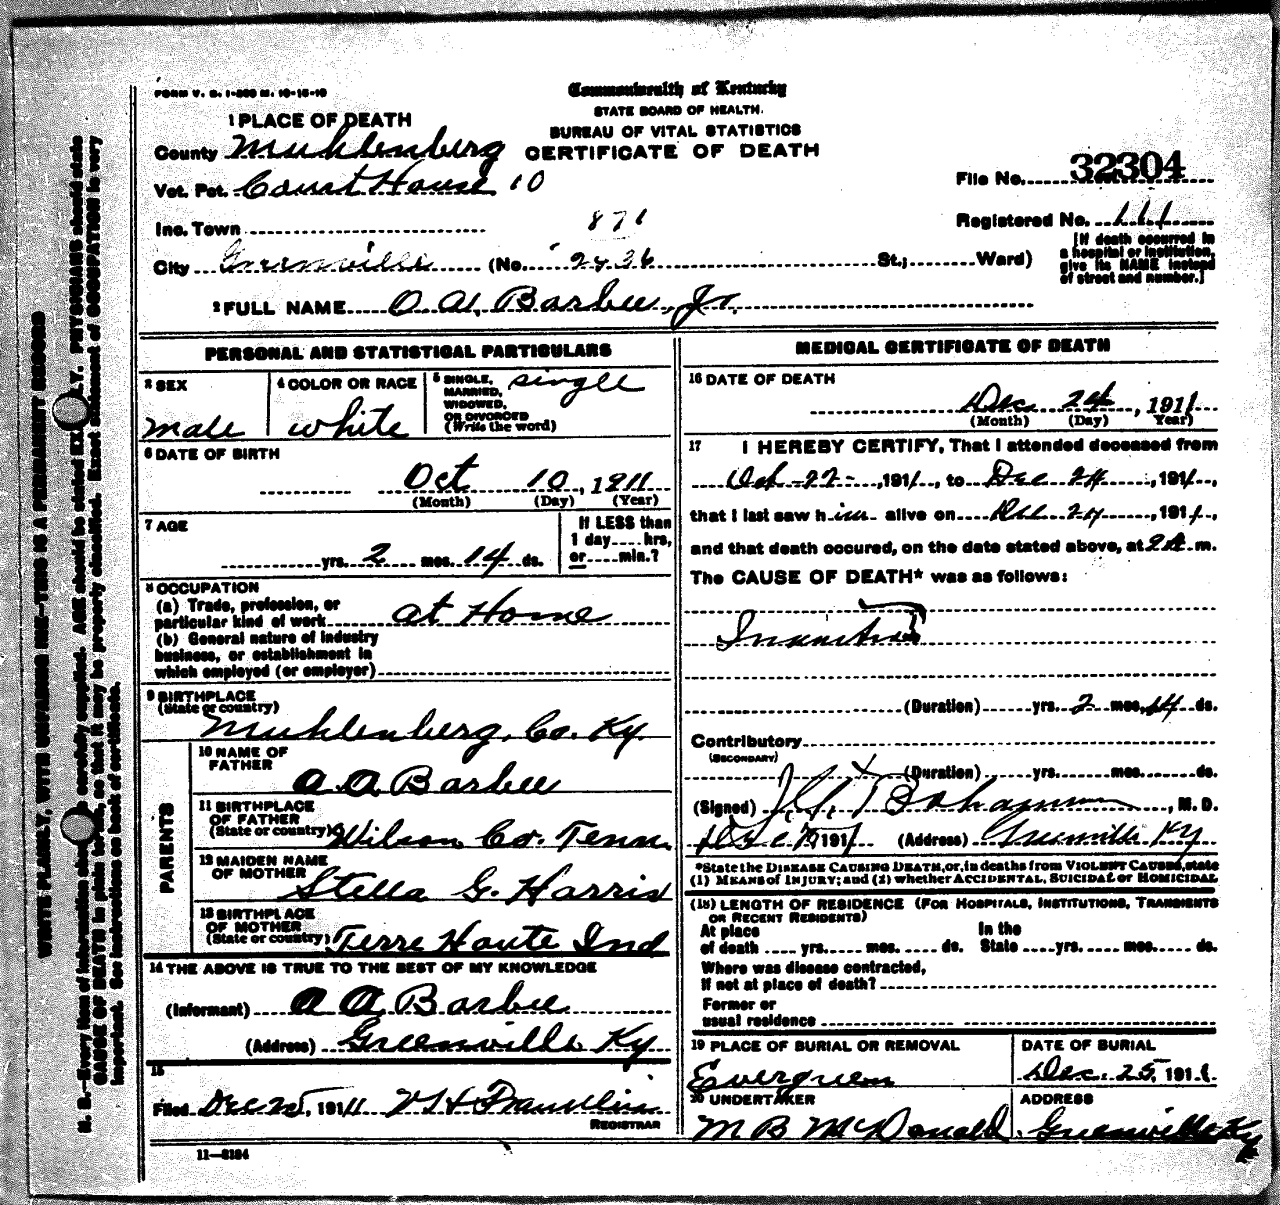 FORM V. S. 1-
Commonwealth of Kentucky
STATE BOARD OF HEALTH.
BUREAU OF VITAL STATISTICS
CERTIFICATE OF DEATH
1 PLACE OF DEATH
County Muhlenberg
Vot. Pct. Court House 10
File No. 32304
Inc. Town
871
Registered No. 111
City Greenville (No. 2436 St.; Ward)
[If death occurred in a hospital or institution, give its NAME instead of street and number.]
2 FULL NAME O. A. Barbee, Jr.
PERSONAL AND STATISTICAL PARTICULARS
3 SEX
male
4 COLOR OR RACE
white
5 SINGLE, MARRIED, WIDOWED, OR DIVORCED (Write the word)
single
6 DATE OF BIRTH
Oct 10, 1911
(Month) (Day) (Year)
7 AGE
yrs. 2 mos. 14 ds.
If LESS than 1 day....hrs, or.....min.?
8 OCCUPATION
(a) Trade, profession, or
particular kind of work at Home
(b) General nature of industry
business, or establishment in
which employed (or employer)
9 BIRTHPLACE
(State or country)
Muhlenberg, Co. Ky.
PARENTS
10 NAME OF FATHER
A A Barbee
11 BIRTHPLACE OF FATHER
(State or country) Wilson Co. Tenn.
12 MAIDEN NAME OF MOTHER
Stella G. Harris
13 BIRTHPLACE OF MOTHER
(State or country) Terre Haute Ind
14 THE ABOVE IS TRUE TO THE BEST OF MY KNOWLEDGE
(Informant) A A Barbee
(Address) Greenville Ky
15
Filed Dec 25, 1911 Franklin
REGISTRAR
11—3184
MEDICAL CERTIFICATE OF DEATH
16 DATE OF DEATH
Dec 24, 1911
(Month) (Day) Year)
17 I HEREBY CERTIFY, That I attended deceased from
Oct 22, 1911, to Dec 24, 1911,
that I last saw him alive on Dec 24, 1911,
and that death occured, on the date stated above, at 2 A m.
The CAUSE OF DEATH* was as follows:
Inanition
(Duration) yrs. 2 mos. 14 ds.
Contributory
(SECONDARY)
(Duration) yrs. mos. ds.
(Signed) Bohannon, M. D.
Dec 1911 (Address) Greenville Ky
*State the DISEASE CAUSING DEATH, or, in deaths from VIOLENT CAUSES, state
(1) MEANS of INJURY; and (2) whether ACCIDENTAL, SUICIDAL or HOMICIDAL
(18) LENGTH OF RESIDENCE (FOR HOSPITALS, INSTITUTIONS, TRANSIENTS
OR RECENT RESIDENTS)
At place of death .... yrs. mos. ds. In the State yrs. mos. ds.
Where was disease contracted,
If not at place of death?
Former or
usual residence
19 PLACE OF BURIAL OR REMOVAL
Evergreen
DATE OF BURIAL
Dec. 25, 1911
20 UNDERTAKER
M B McDonald
ADDRESS
Greenville Ky
WRITE PLAINLY, WITH UNFADING INK—THIS IS A PERMANENT RECORD
N. B.—Every item of information should be carefully supplied. AGE should be stated EXACTLY. PHYSICIANS should state
CAUSE OF DEATH in plain terms, so that it may be properly classified. Exact statement of OCCUPATION is very
important. See instructions on back of certificate.